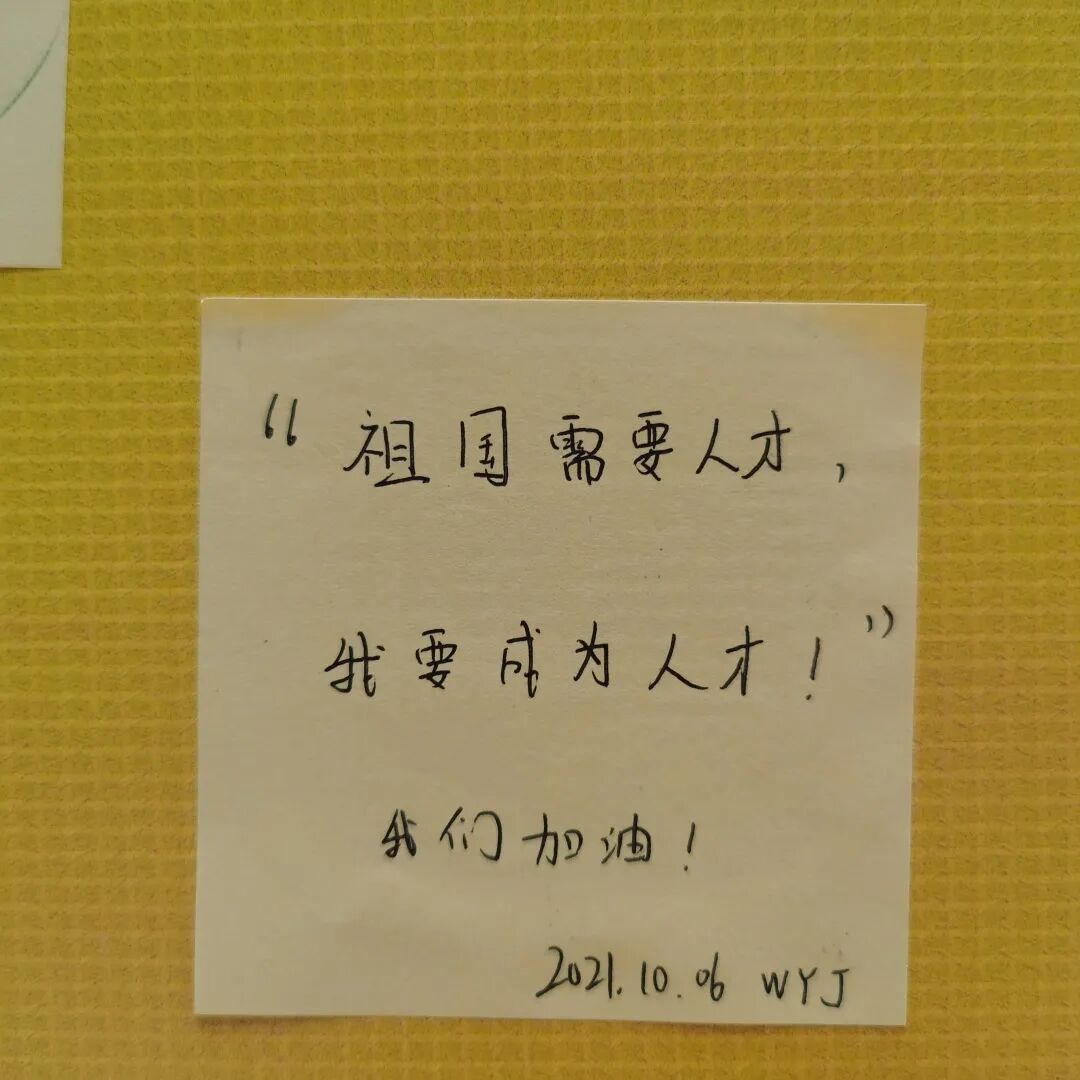 “祖国需要人才,
我要成为人才!”
我们加油!
2021.10.06 WYJ